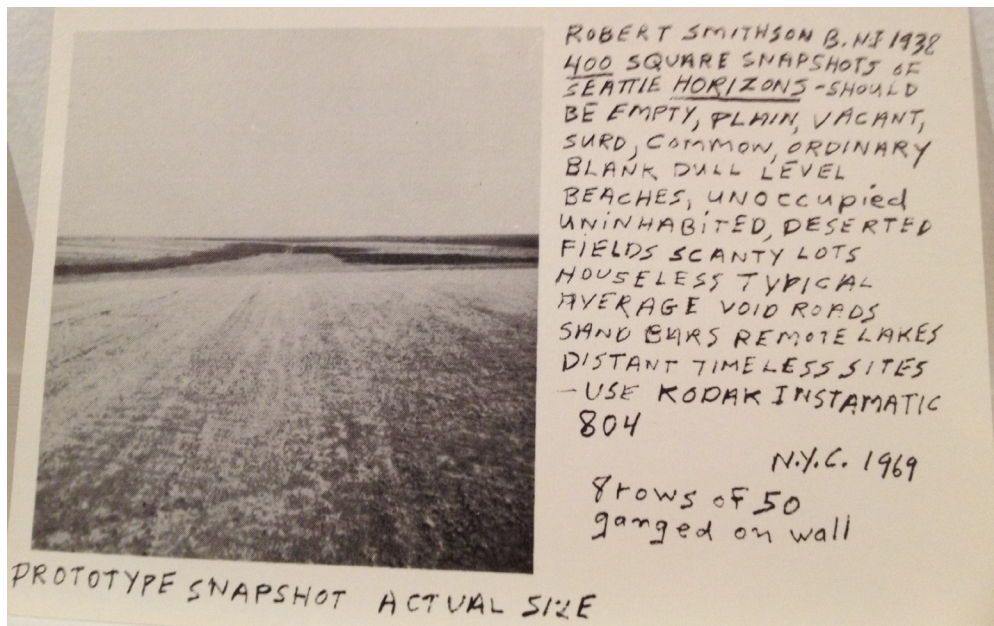 ROBERT SMITHSON B. NJ 1938
400 SQUARE SNAPSHOTS OF
SEATTLE HORIZONS - SHOULD
BE EMPTY, PLAIN, VACANT,
SURD, COMMON, ORDINARY
BLANK DULL LEVEL
BEACHES, UNOCCUPIED
UNINHABITED, DESERTED
FIELDS SCANTY LOTS
HOUSELESS TYPICAL
AVERAGE VOID ROADS
SAND BARS REMOTE LAKES
DISTANT TIMELESS SITES
- USE KODAK INSTAMATIC
804
N.Y.C. 1969
8 rows of 50
ganged on wall
PROTOTYPE SNAPSHOT ACTUAL SIZE